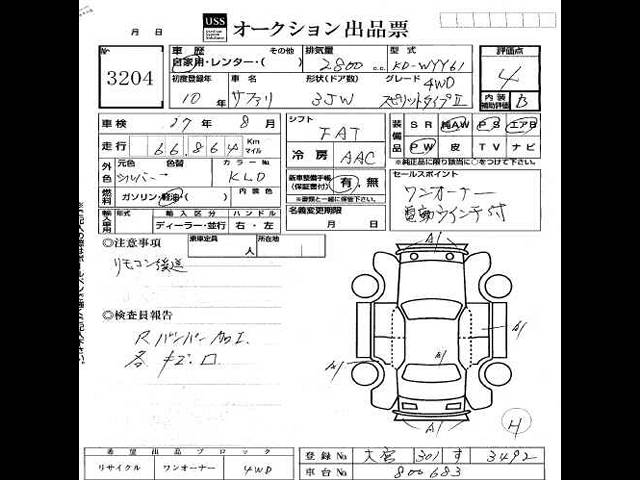 月 日 USS オークション 出品票
No 3204
車歴 その他 自家用・レンター・( )
排気量 2800 c.c.
型式 KD-WYY61
評価点 4
初度登録年 10年
車名 サファリ
形状(ドア数) 35W
グレード 4WD スピリットタイプⅡ
内装補助評価 B
車検 17年 8月
シフト FAT
装備品 SR 純AW PS エアB
PW 皮 TV ナビ
※純正品に限り該当に○をつけて下さい。
走行 66,864 Km マイル
冷房 AAC
外色 元色 シルバー 色替 カラーNo KL0
新車整備手帳(保証書付) 有・無
※書類と一緒に保管して下さい。
セールスポイント
ワンオーナー
電動ウインチ付
燃料 ガソリン・軽油・( )
内装色
名義変更期限 月 日
輸入車用 年式 輸入区分 ディーラー・並行 ハンドル 右・左
◎注意事項
乗車定員 人 所在地
リモコン後送
◎検査員報告
Rバンパー加工
各キズ・ロ
A1
A1
A1
A1
A1
H
希望出品ブロック
リサイクル ワンオーナー 4WD
登録No 大宮 301 す 3492
車台No 800683